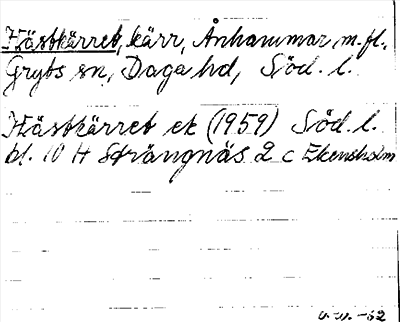 Hästkärret, kärr, Ånhammar, m.fl.
Gryts sn, Daga hd, Söd. l.
Hästkärret ek (1959) Söd. l.
bl. 10 H Strängnäs 2 c Ekensholm
-62